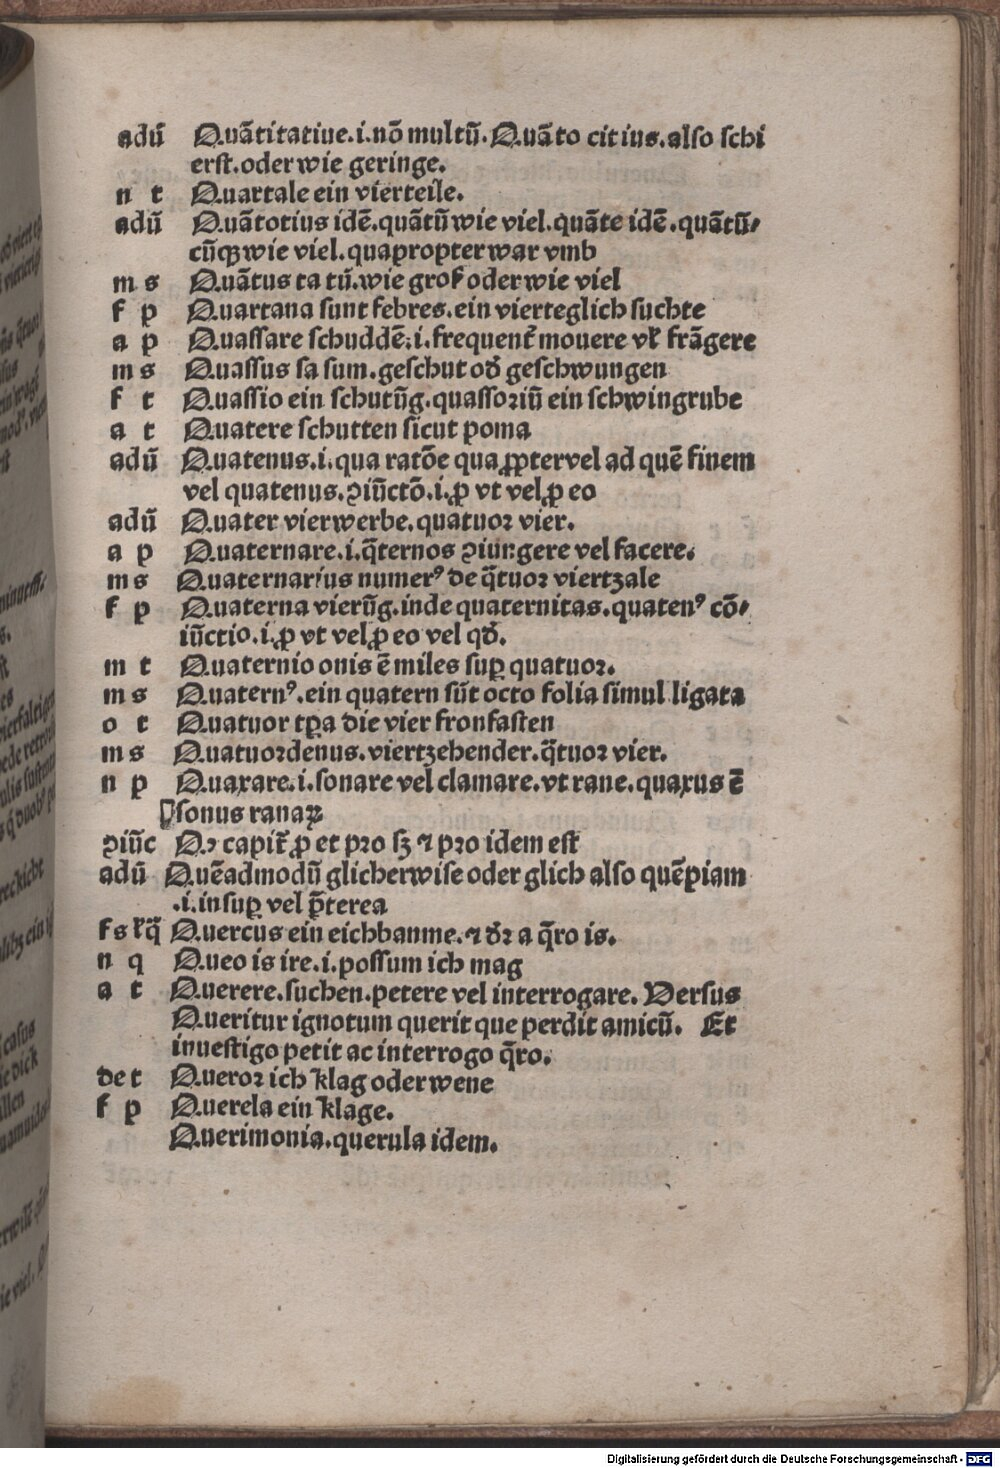 adū Quātitatiue.i.nō multū.Quāto citius.also schi
erst.oder wie geringe.
n t Quartale ein vierteile.
adū Quātotius idē.quātū wie viel.quāte idē.quātū⸗
cūqꝫ wie viel.quapropter war vmb
m s Quātus ta tū.wie groß oder wie viel
f p Quartana sunt febres.ein vierteglich suchte
a p Quassare schuddē.i.frequent̄ mouere vł frāgere
m s Quassus sa sum.geschut od̄ geschwungen
f t Quassio ein schutūg.quassoriū ein schwingrube
a t Quatere schutten sicut poma
adū Quatenus.i.qua ratōe qua ꝓpter vel ad quē finem
vel quatenus.ꝯiūctō.i.ꝓ vt vel ꝓ eo
adū Quater vierwerbe.quatuor vier.
a p Quaternare.i.q̄ternos ꝯiungere vel facere.
m s Quaternarius numerꝰ de q̄tuor viertzale
f p Quaterna vierūg.inde quaternitas.quatenꝰ cō⸗
iūctio.i.ꝓ vt vel ꝓ eo vel qd̄.
m t Quaternio onis ē miles suꝑ quatuor.
m s Quaternꝰ.ein quatern sūt octo folia simul ligata
o t Quatuor tꝑa die vier fronfasten
m s Quatuordenus.viertzehender.q̄tuor vier.
n p Quaxare.i.sonare vel clamare.vt rane.quaxus ē
sonus ranaꝝ
ꝯiūc Qꝛ capit̄ ꝓ et pro sꝫ ⁊ pro idem est
adū Quēadmodū glicherwise oder glich also quēpiam
.i.insuꝑ vel p̄terea
f s ⁊ q̄ Quercus ein eichbaume.⁊ dꝛ a q̄ro is.
n q Queo is ire.i.possum ich mag
a t Querere.suchen.petere vel interrogare. Versus
Queritur ignotum querit que perdit amicū. Et
inuestigo petit ac interrogo q̄ro.
de t Queror ich klag oder wene
f p Querela ein klage.
Querimonia.querula idem.
Digitalisierung gefördert durch die Deutsche Forschungsgemeinschaft - DFG